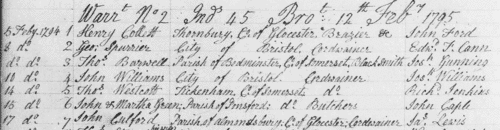 Warrt. No 2 Ind 45 Brot. 12th Feby 1795
5 Feby. 1794 1 Henry Collett Thornbury, C. of Glocester Brazier &c John Ford
8 do 2 Geo. Spurrier City of Bristol Cordwainer Edwd. J. Cann
do do 3 Thos. Barwell Parish of Bedminster, C. of Somerset, Black Smith Jos. Gunning
10 do 4 John Williams City of Bristol Cordwainer Jos. Williams
14 do 5 Thos. Westcott Tickenham, C. of Somerset do Richd. Jenkins
15 do 6 John & Martha Green; Parish of do Butchers John Caple
17 do 7 John Parish of Almondsbury C. of Glocester; Cordwainer Jas. Lewis